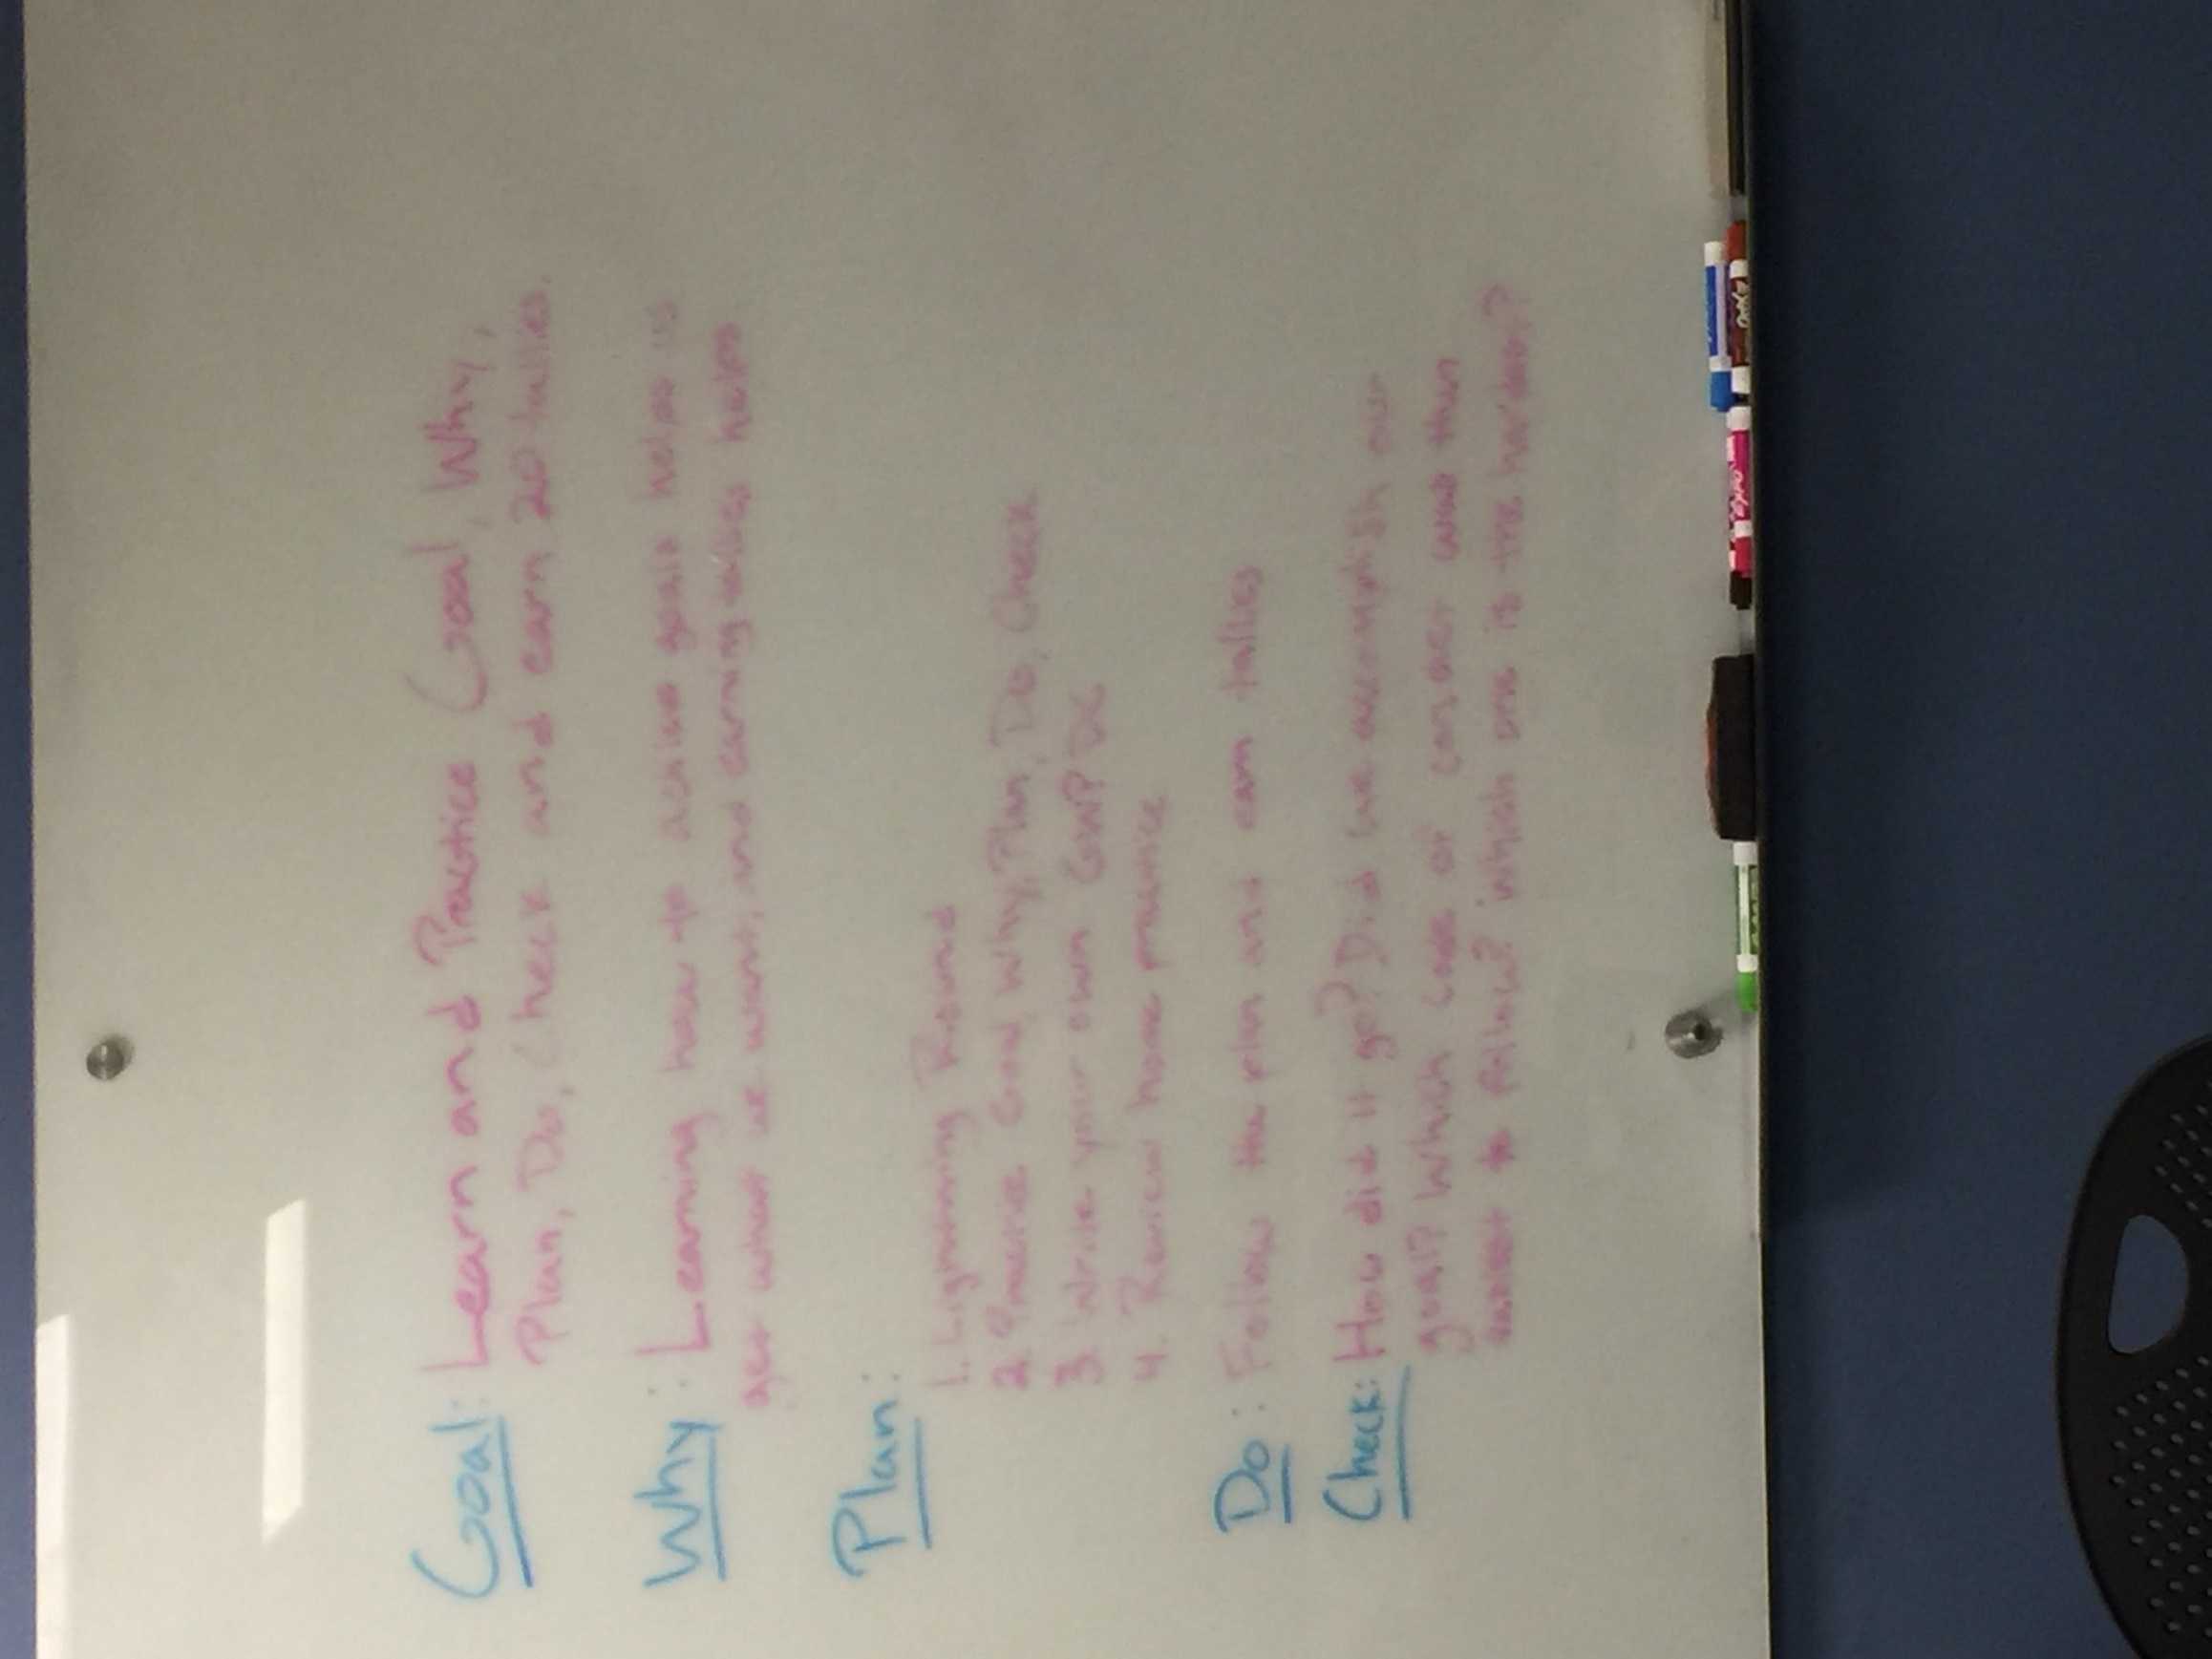 Goal: Learn and Practice Goal, Why,
Plan, Do, Check and earn 20 tallies.
Why: Learning how to achieve goals helps us
get what we want, and earning tallies helps
Plan:
1. Lightning Round
2. Practice Goal, Why, Plan, Do, Check
3. Write your own GWPDC
4. Review home practice
Do: Follow the plan and earn tallies
Check: How did it go? Did we accomplish our
goal? Which code of conduct was the
easiest to follow? Which one is the hardest?
EXPO
EXPO